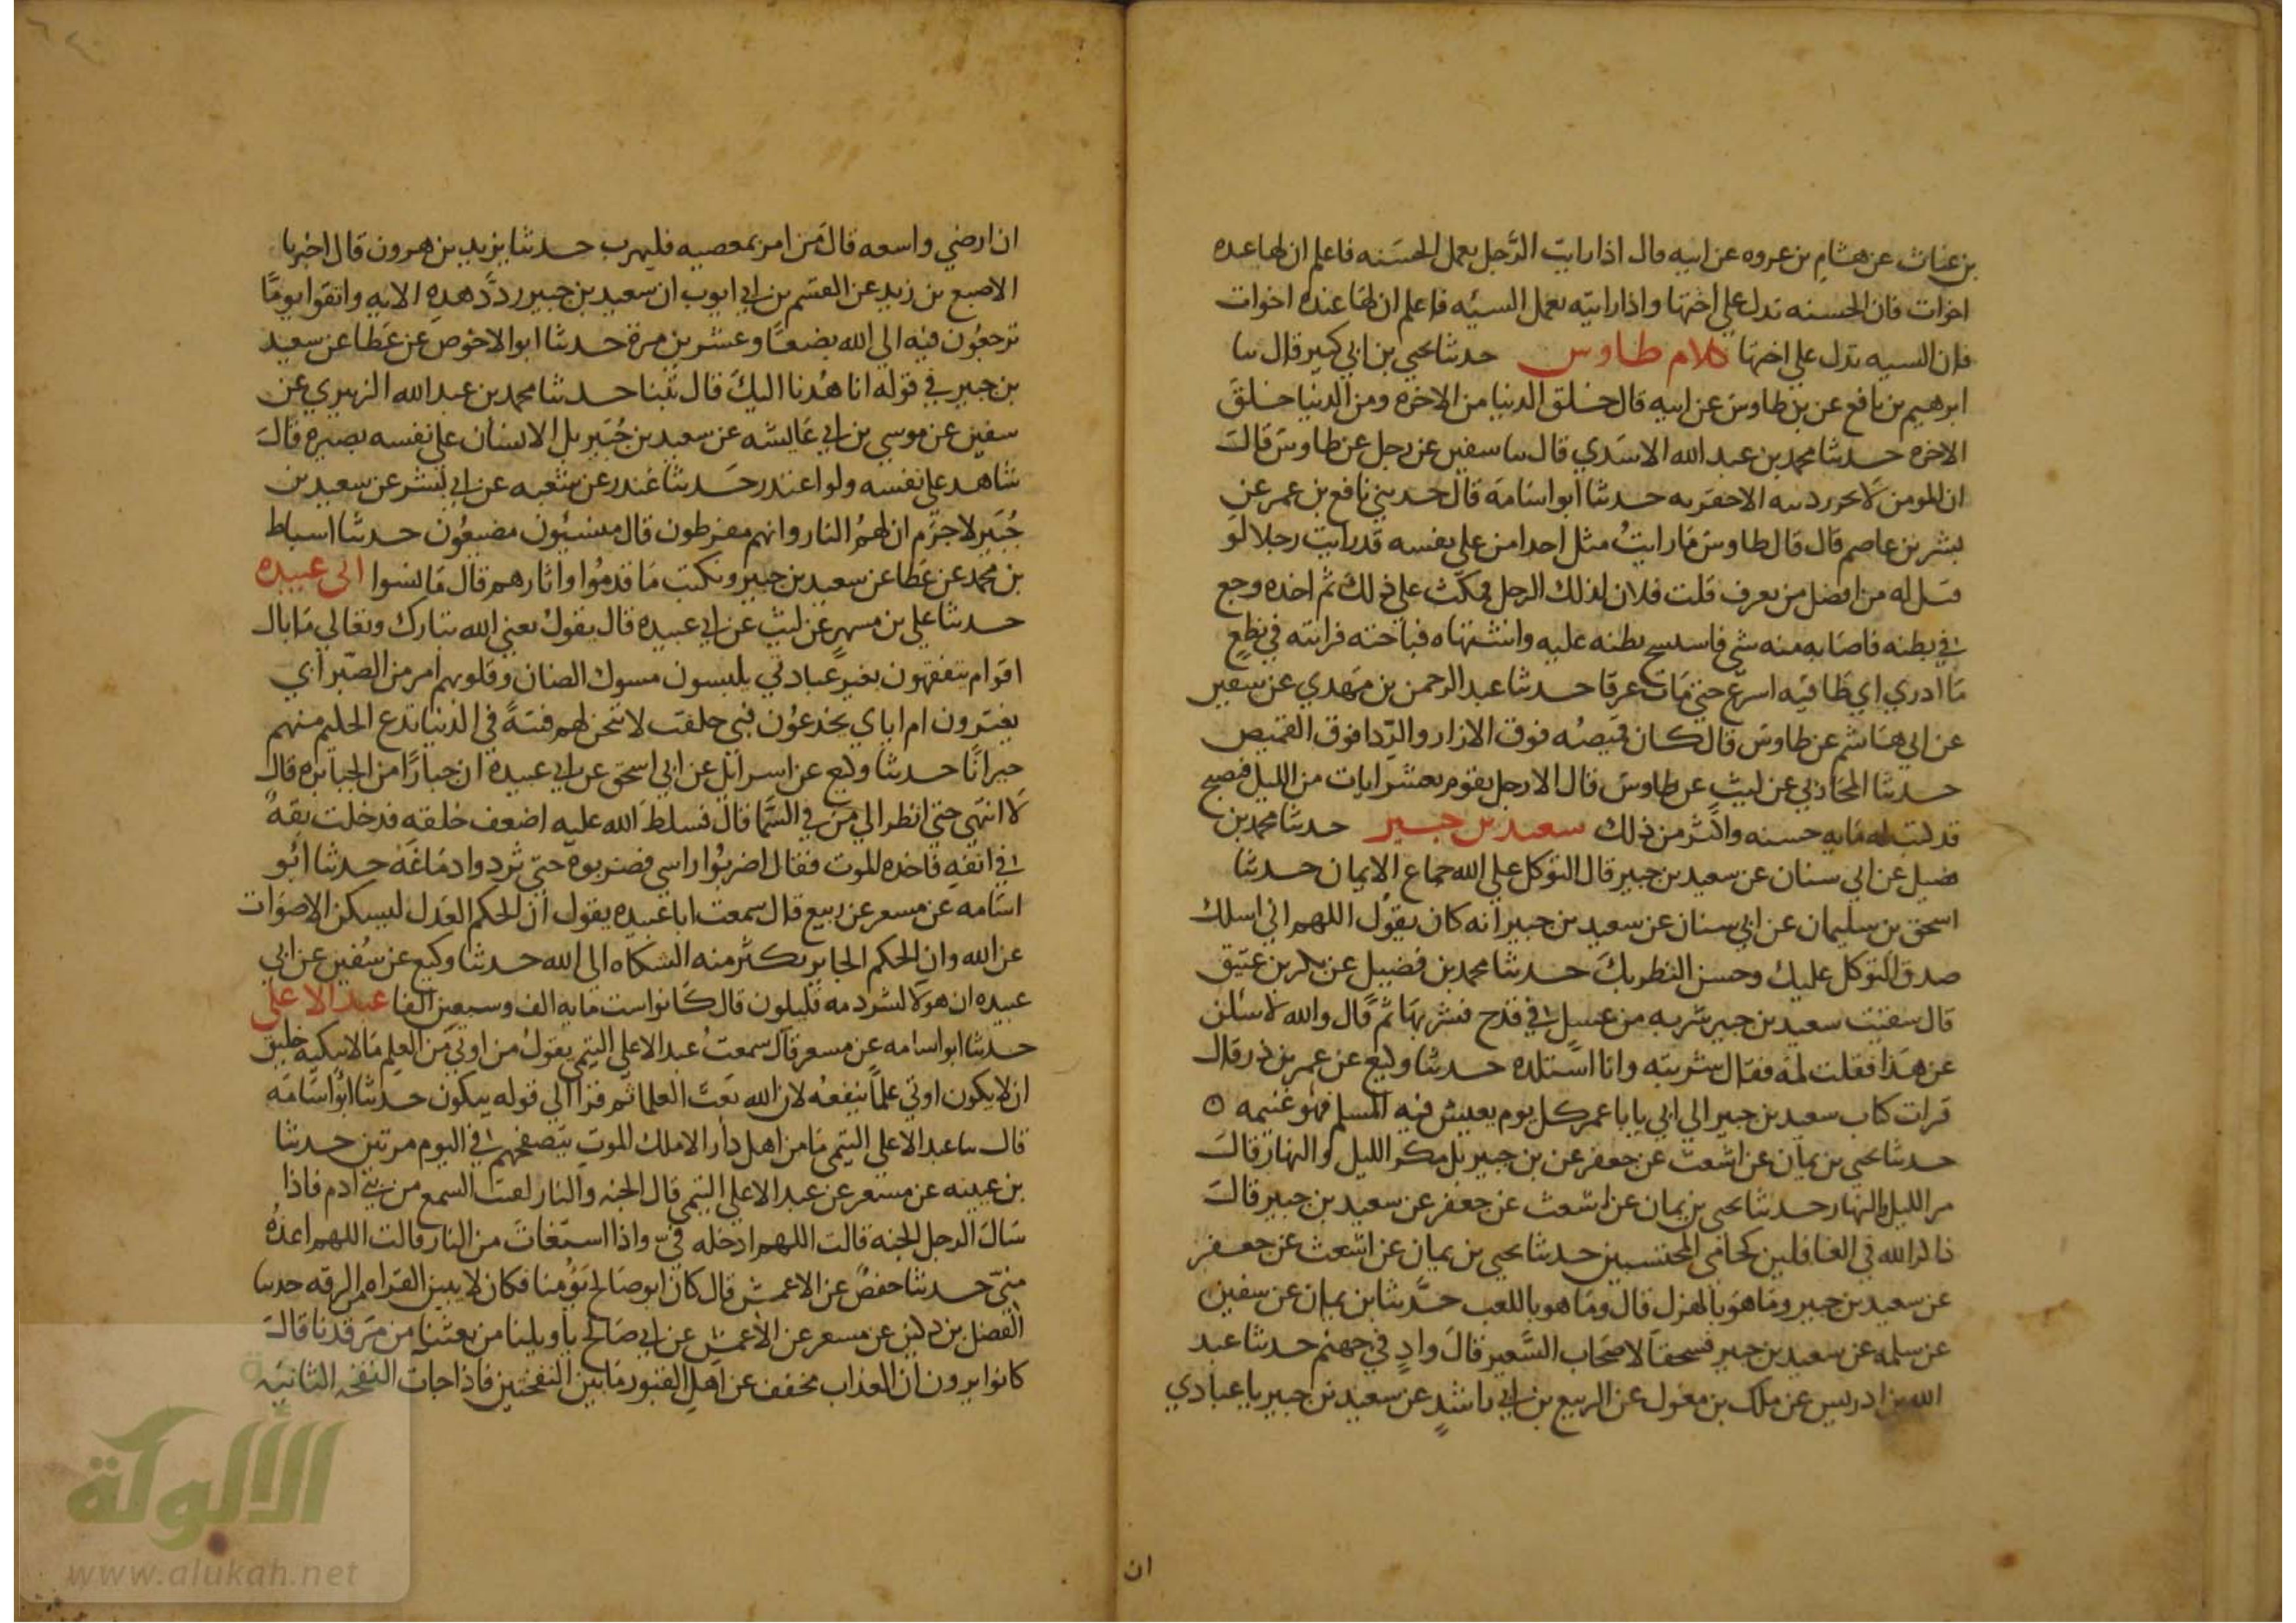 بن غياث عن هشام بن عروه عن ابيه قال اذا رايت الرَّجل يعمل الحسَنه فاعلم ان لها عنده
اخوات فان الحسنه تدل علي اختها واذا رايته يعمل السيئه فاعلم ان لها عنده اخوات
فان السيه تدل علي اختها كلام طاوس حدثنا يحيي بن ابي كبير قال ثنا
ابرهيم بن نافع عن بن طاوس عن ابيه قال خلق الدنيا من الاخره ومن الدنيا خلق
الاخره حدثنا محمد بن عبد الله الاسَدي قال ثنا سفين عن رجل عن طاوس قال
ان المومن لا يحرز دينه الا حفرته حدثنا ابو اسَامة قال حدثني نافع بن عمر عن
بشر بن عاصم قال قال طاوس مَا رايتُ مثل احد امن علي نفسه قد رايت رجلا لو
قيل له من افضل من تعرف قلت فلان لذلك الرجل فمكث علي ذلك ثم اخذه وجع
في بطنه فاصابه منه شي فاستسح بطنه عليه واشتهاه فرايته في نطعٍ
مَا ادري اي طرفيه اسرع حتي مَات عرقا حدثنا عبد الرحمن بن مَهدي عن سفين
عن ابي هَاشم عن طاوس قال كان قميصُه فوق الازار والرّدا فوق القميص
حدثنا المحَاربي عن ليثٍ عن طاوس قال الا رجل يقوم بعشر ايات من الليل فيصبح
قد كتبت له مَايه حسنه واكثر من ذلك سعيد بن جبير حدثنا محمد بن
فضيل عن ابي سنان عن سعيد بن جبير قال التوكل علي الله جماع الايمان حدثنا
اسحق بن سليمان عن ابي سنان عن سعيد بن جبير انه كان يقول اللهم اني اسلك
صدق التوكل عليك وحسن الظن بك حدثنا محمد بن فضيل عن بكر بن عتيق
قال سقيت سعيد بن جبير شربه من عسل في قدح فشربها ثم قال والله لاسئلن
عن هَذا فقلت لمَه فقال شربته وانا استلذه حدثنا وكيع عن عمر بن ذر قال
قرات كتاب سعيد بن جبير الي ابي يابا عمر كل يوم يعيش فيه المسلم فهو غنيمه ۞
حدثنا يحيي بن يمان عن اشعث عن جعفر عن بن جبير بل مكر الليل والنهار قال
مر الليل والنهار حدثنا يحيي بن يمان عن اشعث عن جعفر عن سعيد بن جبير قال
ذاكر الله في الغافلين كحامي المحتسبين حدثنا يحيي بن يمان عن اشعث عن جعفر
عن سعيد بن جبير ومَا هو بالهزل قال ومَا هو باللعب حدَّثنا بن يمان عن سفين
عن سلمه عن سعيد بن جبير فسحقًا لاصحَاب السَّعير قال وادٍ في جهنم حدثنا عبد
الله بن ادريس عن ملك بن مغول عن الربيع بن ابي راشدٍ عن سعيد بن جبير يا عبادي
ان
ان ارضي واسعه قال مَن امر بمعصيه فليهرب حدثنا يزيد بن هرون قال اخبرنا
الاصبع بن زيد عن القسم بن ابي ايوب ان سعيد بن جبير ردَّد هذه الايه واتقوا يومًا
ترجعُون فيه الي الله بضعًا وعشرين مرة حدثنا ابو الاحوَص عن عَطا عن سعيد
بن جبير في قوله انا هُدنا اليك قال تُبنا حدثنا محمد بن عبد الله الزبيري عن
سفين عن موسي بن ابي عَايشه عن سعيد بن جُبَير بل الانسان علي نفسه بصيره قال
شاهد علي نفسه ولو اعتذر حَدثنا غندر عن شعبه عن ابي بشر عن سعيد بن
جُبَير لا جرَم ان لهمُ النار وانهم مفرطون قال منسيُّون مضيعُون حدثنا اسباط
بن محمد عن عَطا عن سعيد بن جبير ونكتب مَا قدمُوا واثارهم قال مَا نسوا ابي عبيده
حدثنا علي بن مسهرٍ عن ليثٍ عن ابي عبيده قال يقول يعني الله تبارك وتعَالي مَا بال
اقوام يتفقهون بغير عبَادتي يلبسون مسوك الضان وقلوبهم امر من الصّبر ابي
يغترون ام اياي يخدعُون فبي حلفت لاتيحن لهم فتنةً في الدنيا تدع الحليم منهم
حيرانًا حدثنا وكيع عن اسرائل عن ابي اسحق عن ابي عبيدة ان جبارًا من الجبابره قال
لا انتهي حتي انظر الي من في السَّما قال فسلط الله عليه اضعف خلقه فدخلت بقهٌ
في انفه فاخذه الموت فقال اضربُوا راسي فضربوه حتي نثروا دمَاغَه حدثنا ابُو
اسَامه عن مسعر عن ربيع قال سمعت ابا عبيده يقول ان الحكم العَدل ليسكن الاصوَات
عن الله وان الحكم الجَاير تكثر منه الشكاه الي الله حدثنا وكيع عن سُفين عن ابي
عبيده ان هوَلا لشرذمه قليلون قال كَانوا ست مَايه الف وسبعين الفا عبد الاعلي
حدثنا ابو اسامه عن مسعر قال سمعتُ عبد الاعلي التيمي يقول من اوتي مِن العِلم مَا لا يبكيه خليق
ان لا يكون اوتي علمًا ينفعُه لان الله نعت العلما ثم قرا الي قوله يبكون حدثنا ابُو اسَامَه
قال ثنا عبد الاعلي التيمي مَا من اهل دَار الا ملك الموت يتصفحهم في اليوم مرتين حدثنا
بن عيينه عن مسعر عن عبد الاعلي التيمي قال الجنه والنار لقنتا السمع من بني ادم فاذا
سَال الرجل الجنه قالت اللهم ادخله فيّ واذا استغاثَ من النار قالت اللهم اعذهُ
منيّ حدثنا حفصٌ عن الاعمش قال كان ابو صَالح يؤمنا فكان لا يبين القراه من الرقه حدثنا
الفضل بن دكين عن مسعر عن الاعمش عن ابي صَالح يا ويلنا من بعثنا من مَرقدنا قال
كانوا يرون ان العذاب يخفف عن اهل القبور مَا بين النفختين فاذا جات النفخه الثانيه
الألوكة
www.alukah.net